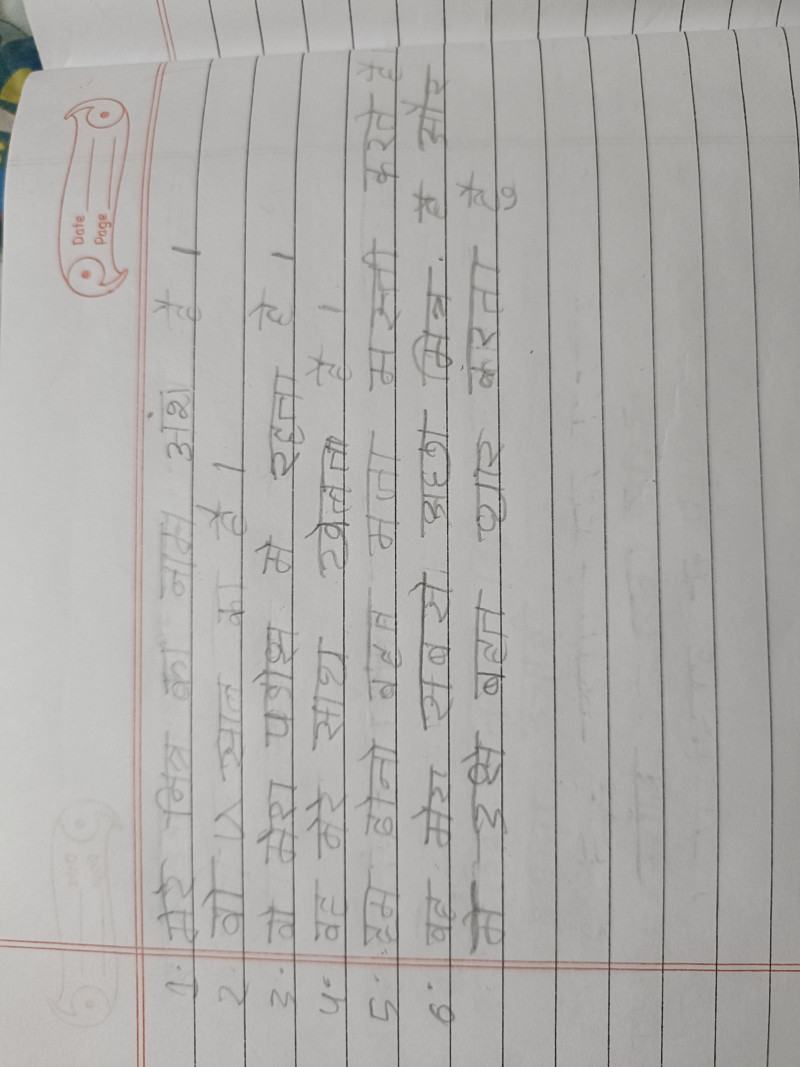 Date
Page
1. मेरे मित्र का नाम अंश है ।
2. वो ५ साल का है ।
3. वो मेरा पडोस मे रहता है ।
4. वह मेरे साथ खेलता है ।
5. हम दोनो बहुत मजा मस्ती करते है
6. वह मेरा सबसे अच्छा मित्र है और
मे उसे बहुत प्यार करता हूँ